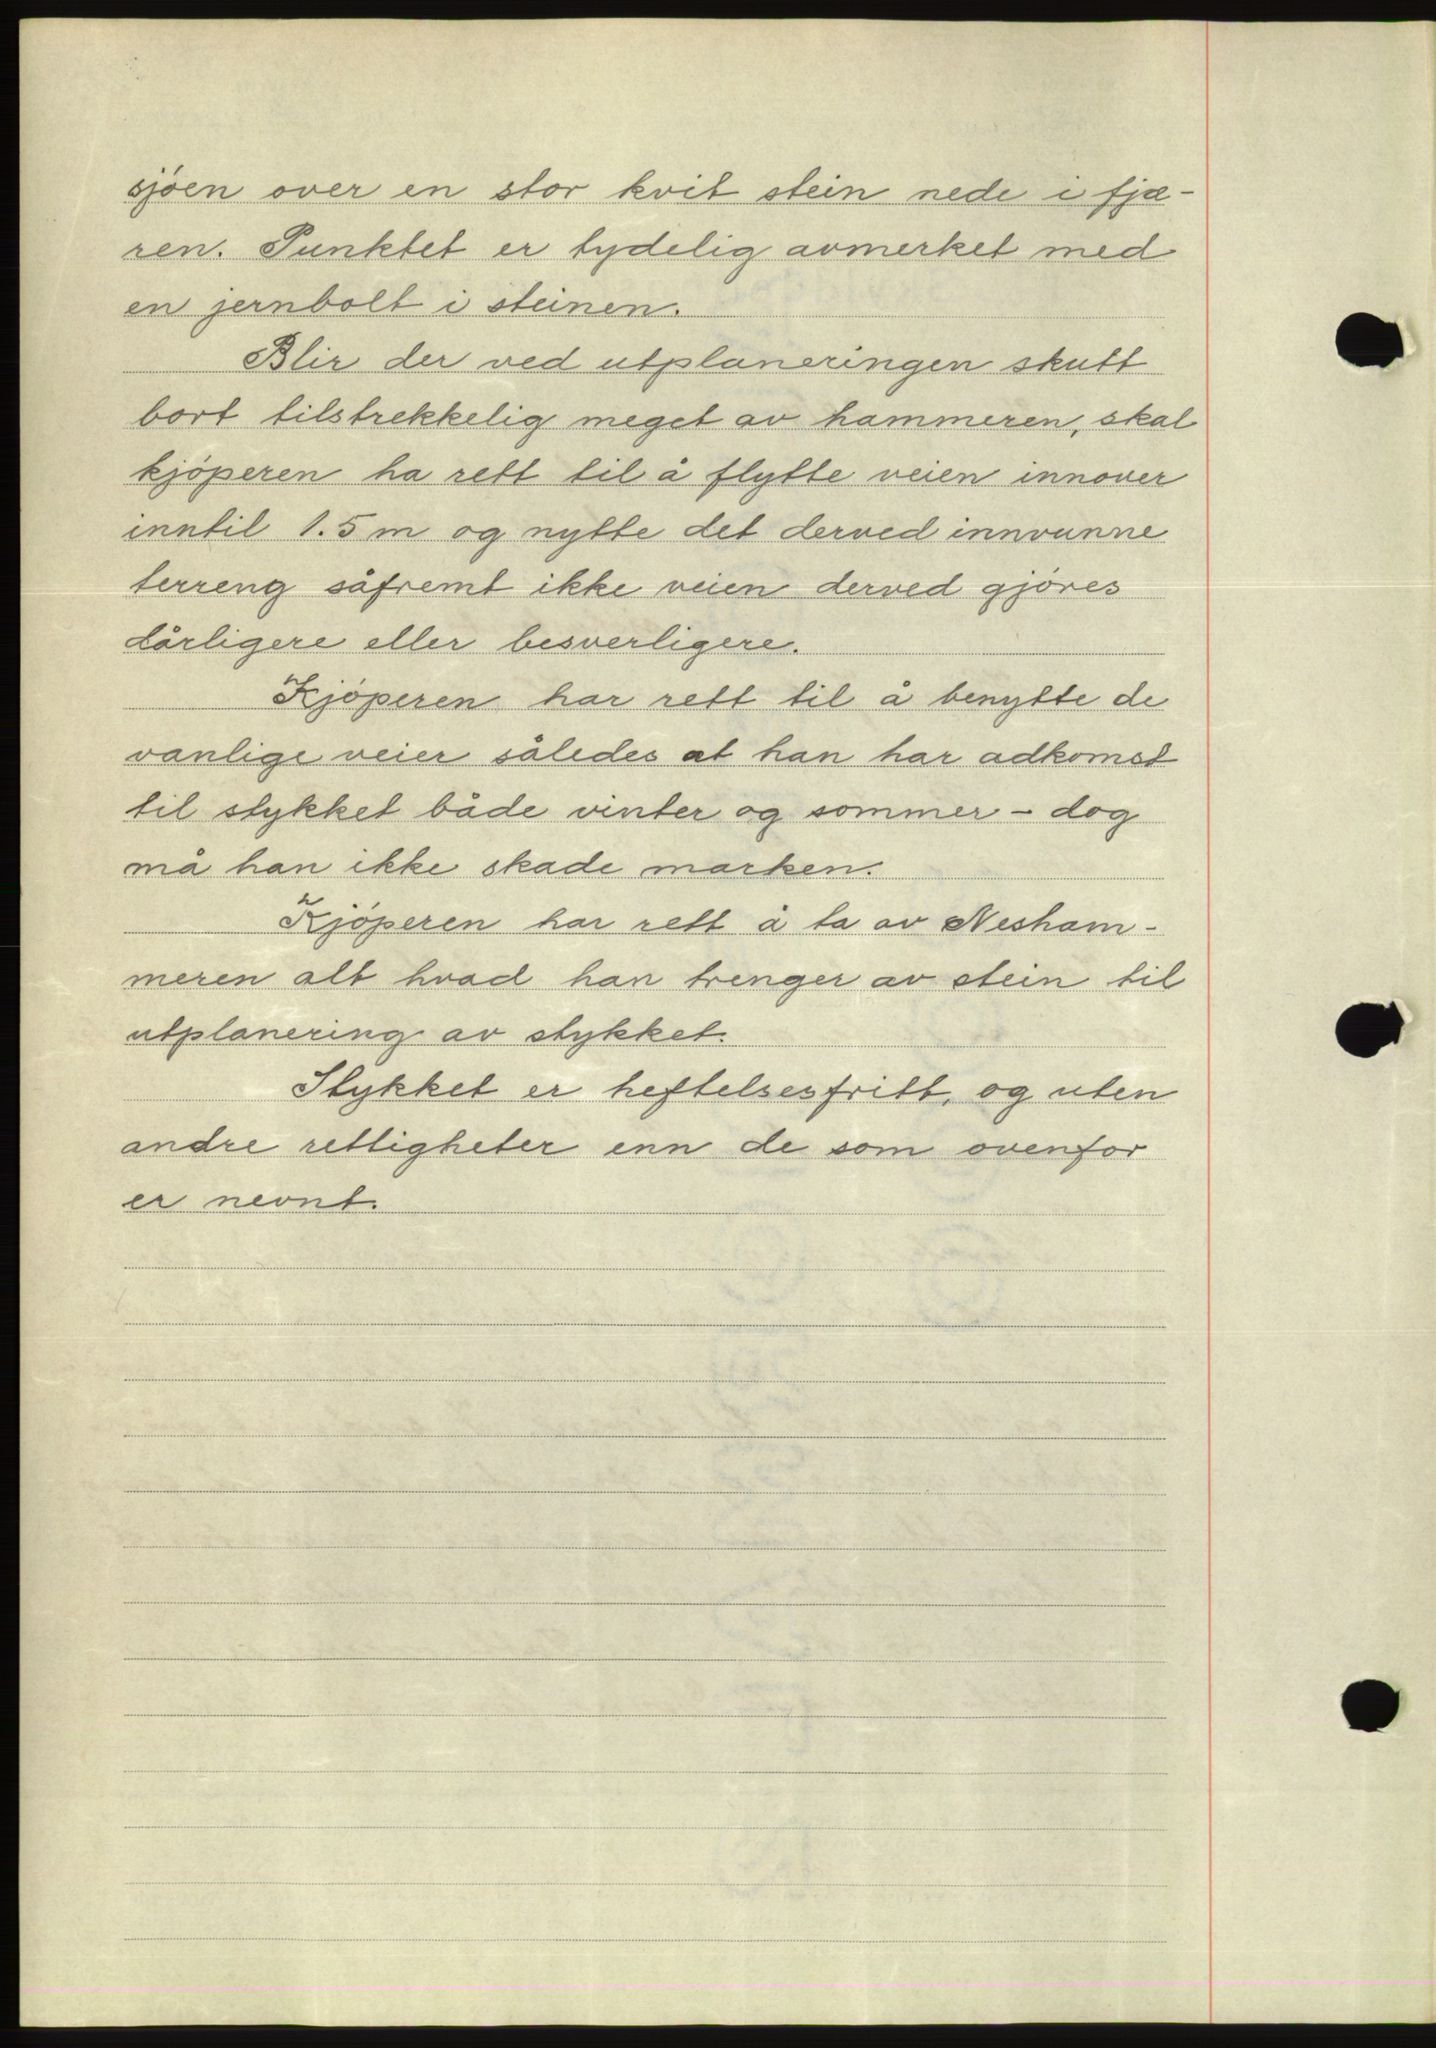 sjóen over en stor kvit stein nede i fjæ-
ren. Punktet er tydelig avmerket med
en jernbolt i steinen.
Blir der ved utplaneringen skutt
bort tilstrekkelig meget av hammeren, skal
kjóperen ha rett til å flytte veien innover
inntil 1.5 m og nytte det derved innvunne
terreng såfremt ikke veien derved gjóres
dårligere eller besverligere.
Kjóperen har rett til å benytte de
vanlige veier således at han har adkomst
til stykket både vinter og sommer - dog
må han ikke skade marken.
Kjóperen har rett å ta av Nesham-
meren alt hvad han trenger av stein til
utplanering av stykket.
Stykket er heftelsesfritt, og uten
andre rettigheter enn de som ovenfor
er nevnt.